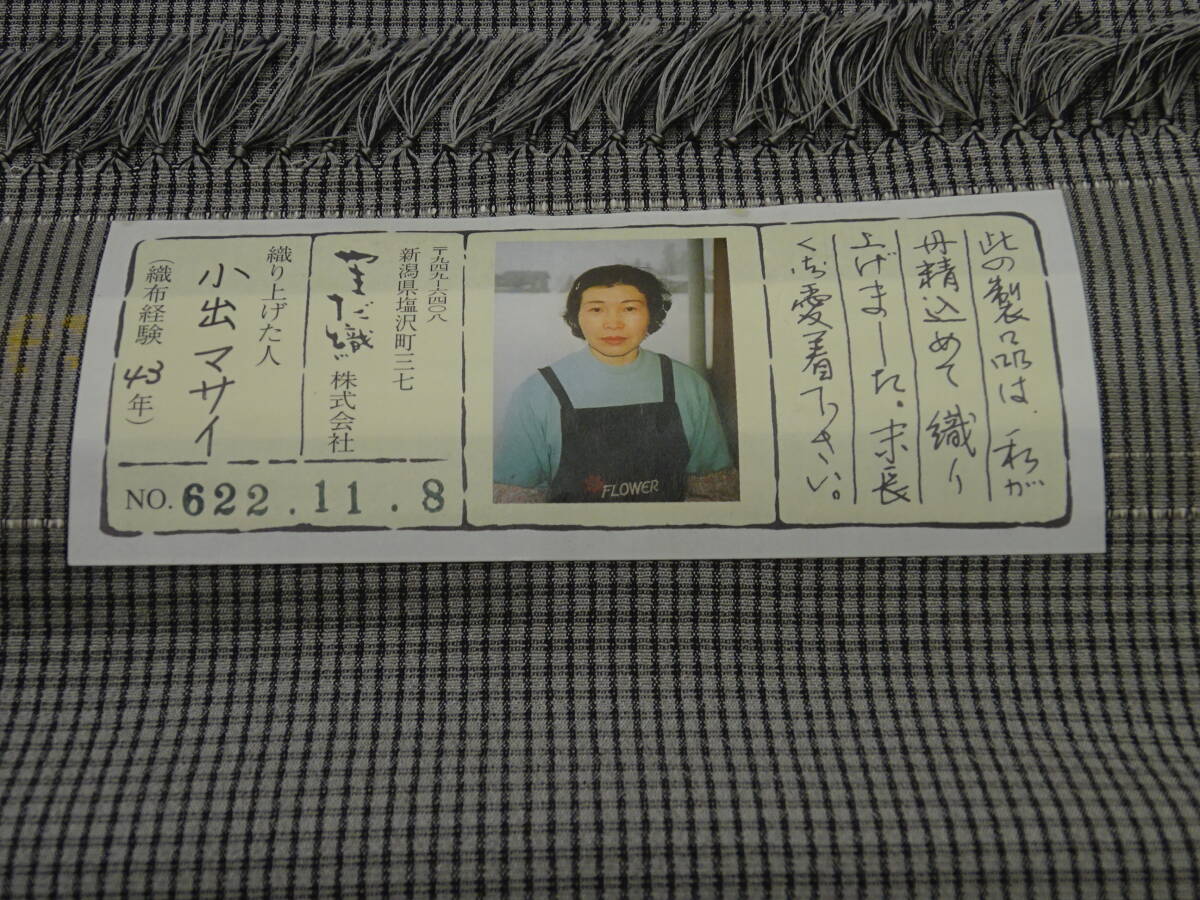 此の製品は、私が
丹精込めて織り
上げました。末長
くご愛着下さい。
FLOWER
〒九四九-六四〇八
新潟県塩沢町三七
やまだ織 株式会社
織り上げた人
小出マサイ
(織布経験 43年)
NO. 622.11.8